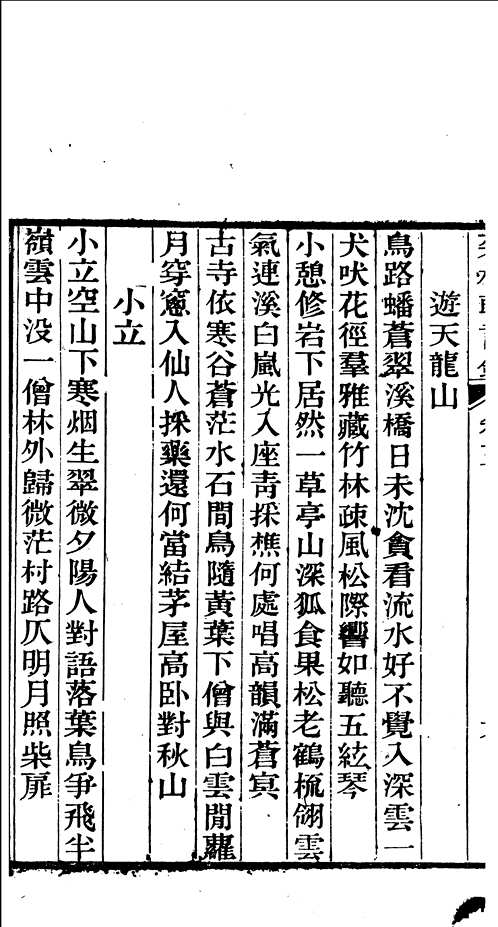 遊天龍山
鳥路蟠蒼翠溪橋日未沈貪看流水好不覺入深雲一
犬吠花徑羣雅藏竹林疎風松際響如聽五絃琴
小憩修岩下居然一草亭山深狐食果松老鶴梳翎雲
氣連溪白嵐光入座青採樵何處唱高韻滿蒼冥
古寺依寒谷蒼茫水石間鳥隨黃葉下僧與白雲閒蘿
月穿窻入仙人採藥還何當結茅屋高卧對秋山
小立
小立空山下寒烟生翠微夕陽人對語落葉鳥爭飛半
嶺雲中没一僧林外歸微茫村路仄明月照柴扉